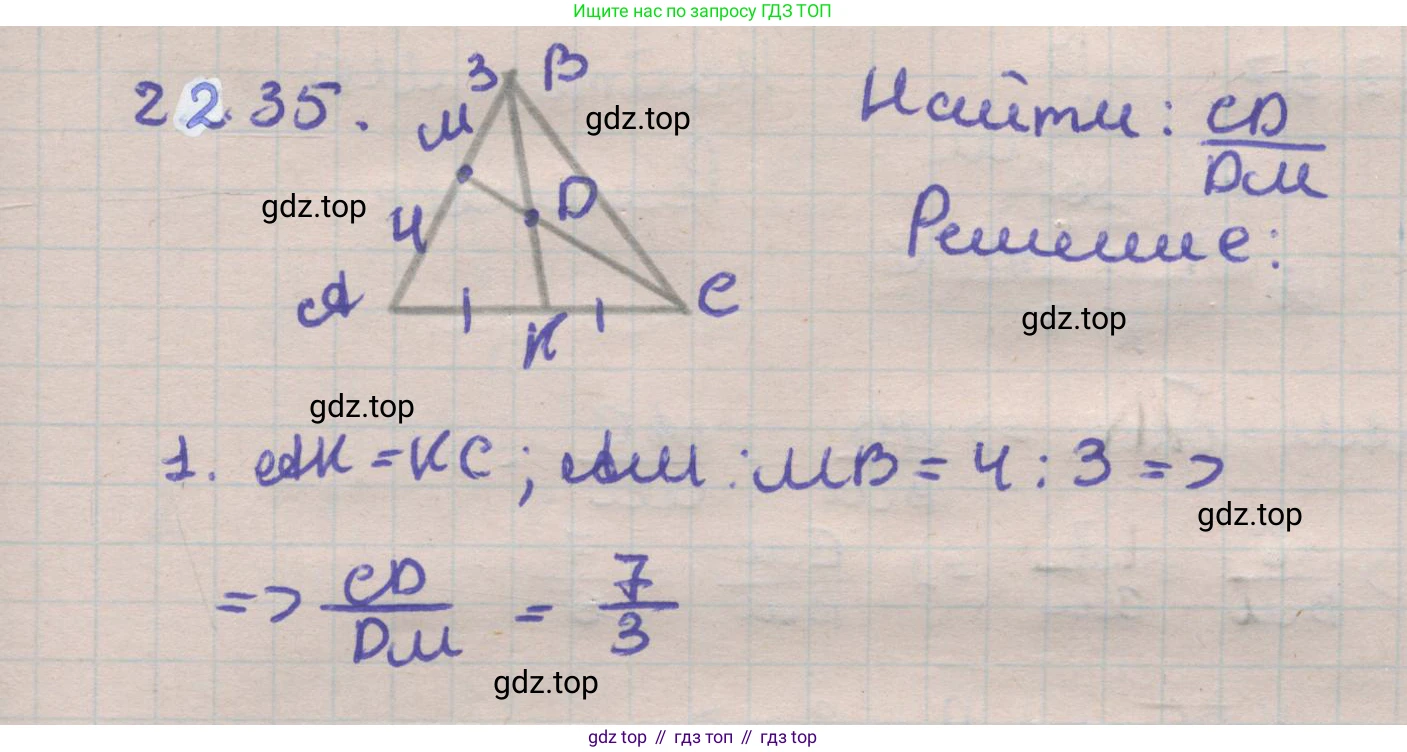 Ищите нас по запросу ГДЗ ТОП
22.35.
3 B
M
gdz.top
Найти: CD/DM
gdz.top
4
D
Решение:
A
C
K
gdz.top
gdz.top
1. AK = KC; AM : MB = 4 : 3 =>
gdz.top
=> CD/DM = 7/3
gdz.top
gdz top // гдз топ // гдз top